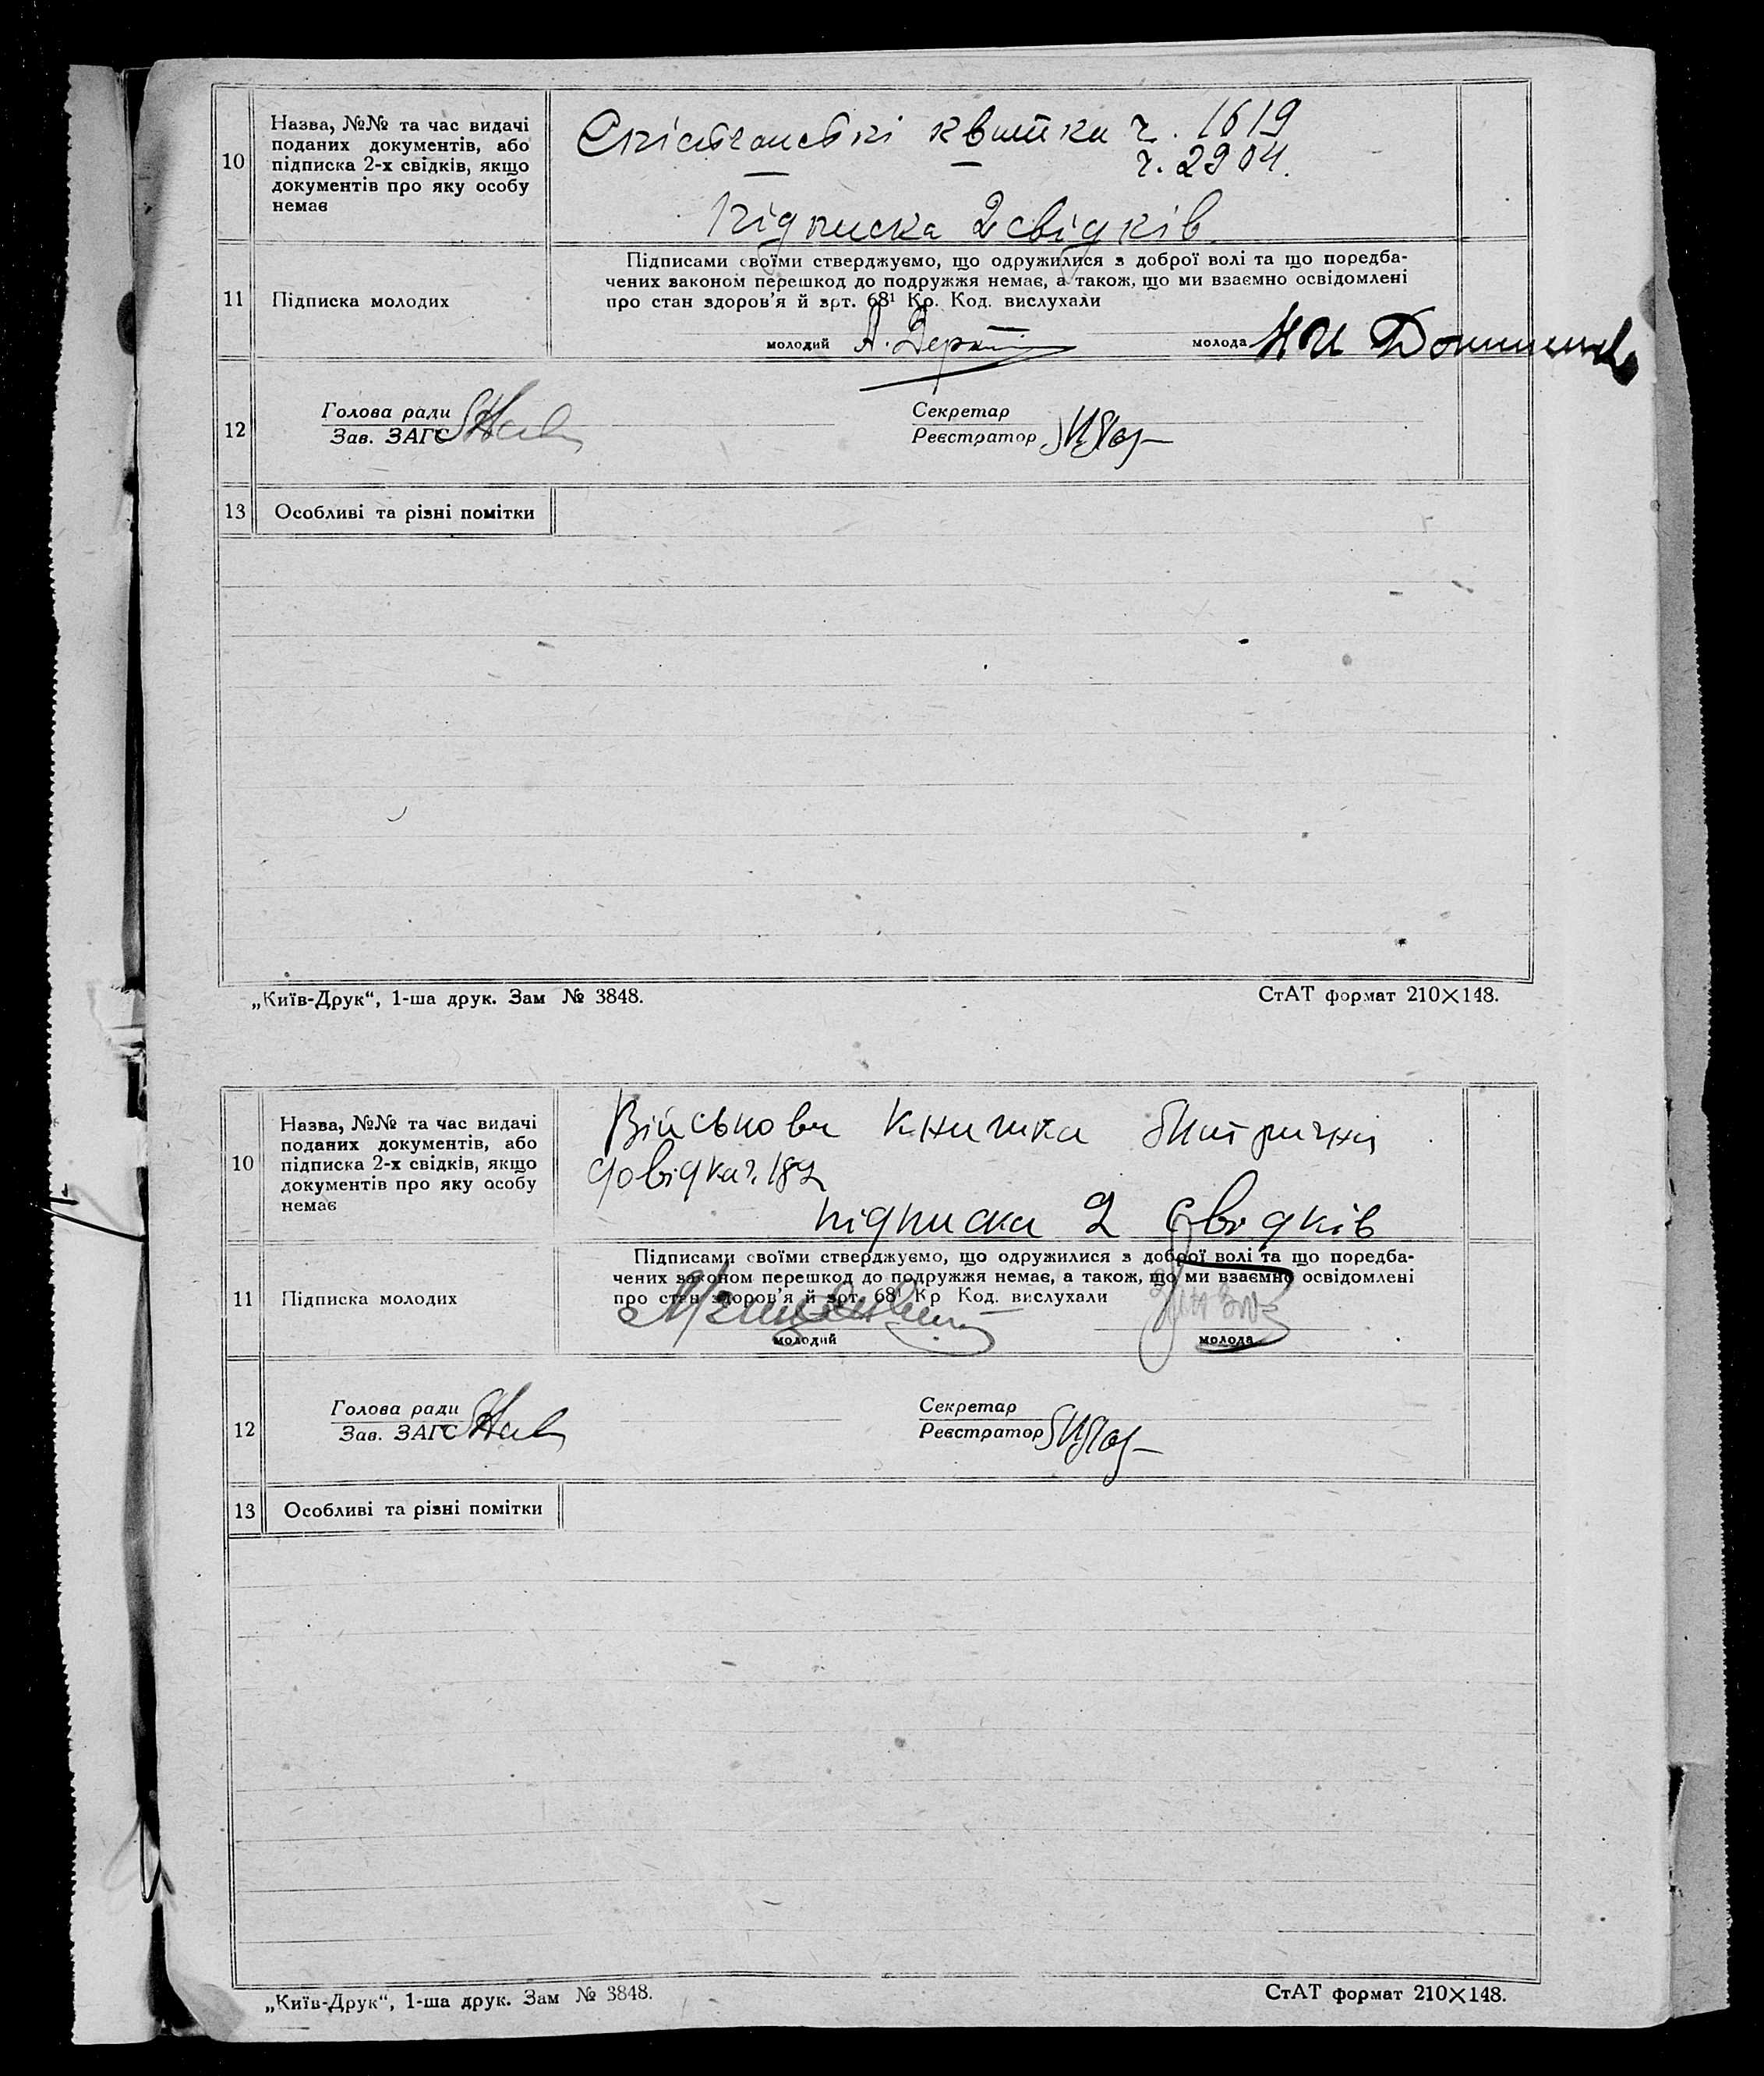 10
Назва, №№ та час видачі
поданих документів, або
підписка 2-х свідків, якщо
документів про яку особу
немає
квитки ч. 1619
ч. 2904.
Підписка 2 свідків
11
Підписка молодих
Підписами своїми стверджуємо, що одружилися з доброї волі та що поредба-
чених законом перешкод до подружжя немає, а також, що ми взаємно освідомлені
про стан здоров'я й арт. 68¹ Кр. Код. вислухали
молодий А.
молода
12
Голова ради
Зав. ЗАГС
Секретар
Реєстратор
13
Особливі та різні помітки
„Київ-Друк“, 1-ша друк. Зам № 3848.
СтАТ формат 210×148.
10
Назва, №№ та час видачі
поданих документів, або
підписка 2-х свідків, якщо
документів про яку особу
немає
Військова книжка
довідка ч. 182
підписка 2 свідків
11
Підписка молодих
Підписами своїми стверджуємо, що одружилися з доброї волі та що поредба-
чених законом перешкод до подружжя немає, а також, що ми взаємно освідомлені
про стан здоров'я й арт. 68¹ Кр Код. вислухали
молодий
молода
12
Голова ради
Зав. ЗАГС
Секретар
Реєстратор
13
Особливі та різні помітки
„Київ-Друк“, 1-ша друк. Зам № 3848.
СтАТ формат 210×148.